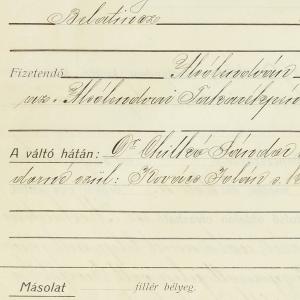 Belatincz
Fizetendő Alsólendván
az Alsólendvai Takarékpé
A váltó hátán: Dr Chilkó Sándor
dorné szül: Kovács Jolán s. k
Másolat fillér bélyeg.